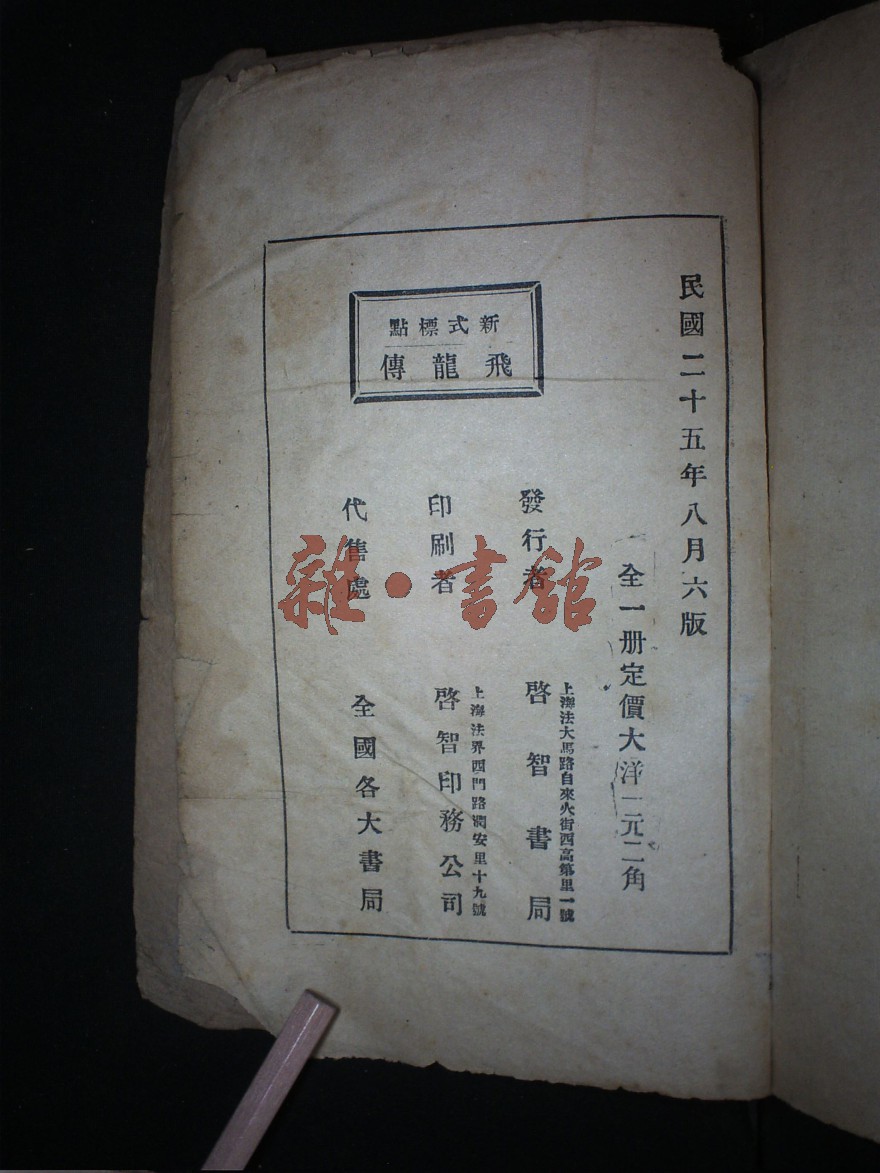 民國二十五年八月六版
全一册定價大洋一元二角
新式標點
飛龍傳
發行者
上海法大馬路自來火街西高第里一號
啓智書局
印刷者
上海法界西門路潤安里十九號
啓智印務公司
代售處
全國各大書局
雜·書館